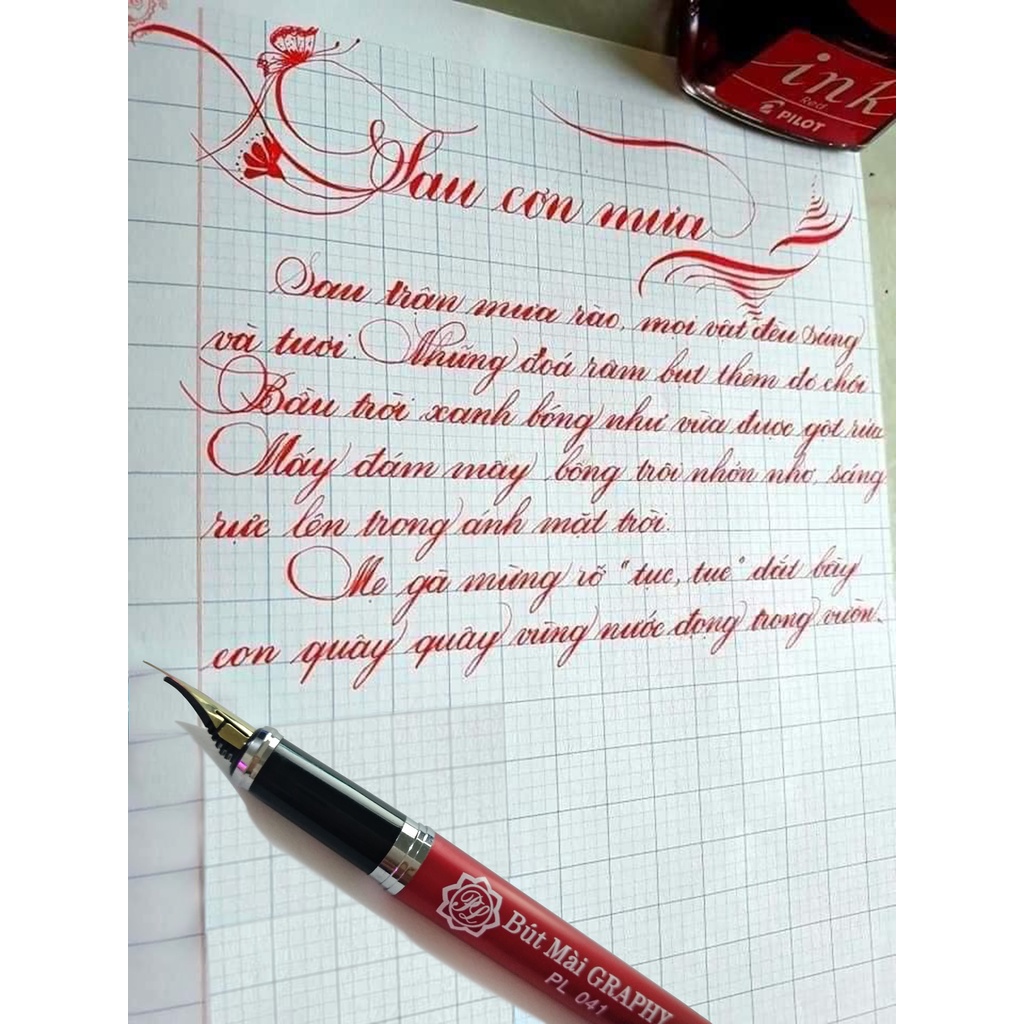 ink
Red
PILOT
Sau cơn mưa
Sau trận mưa rào, mọi vật đều sáng
và tươi. Những đoá râm bụt thêm đỏ chói.
Bầu trời xanh bóng như vừa được gột rửa.
Mấy đám mây bông trôi nhởn nhơ, sáng
rực lên trong ánh mặt trời.
Mẹ gà mừng rỡ "tục, tục" dắt bầy
con quây quây vũng nước đọng trong vườn.
PL
Bút Mài GRAPHY
PL 041